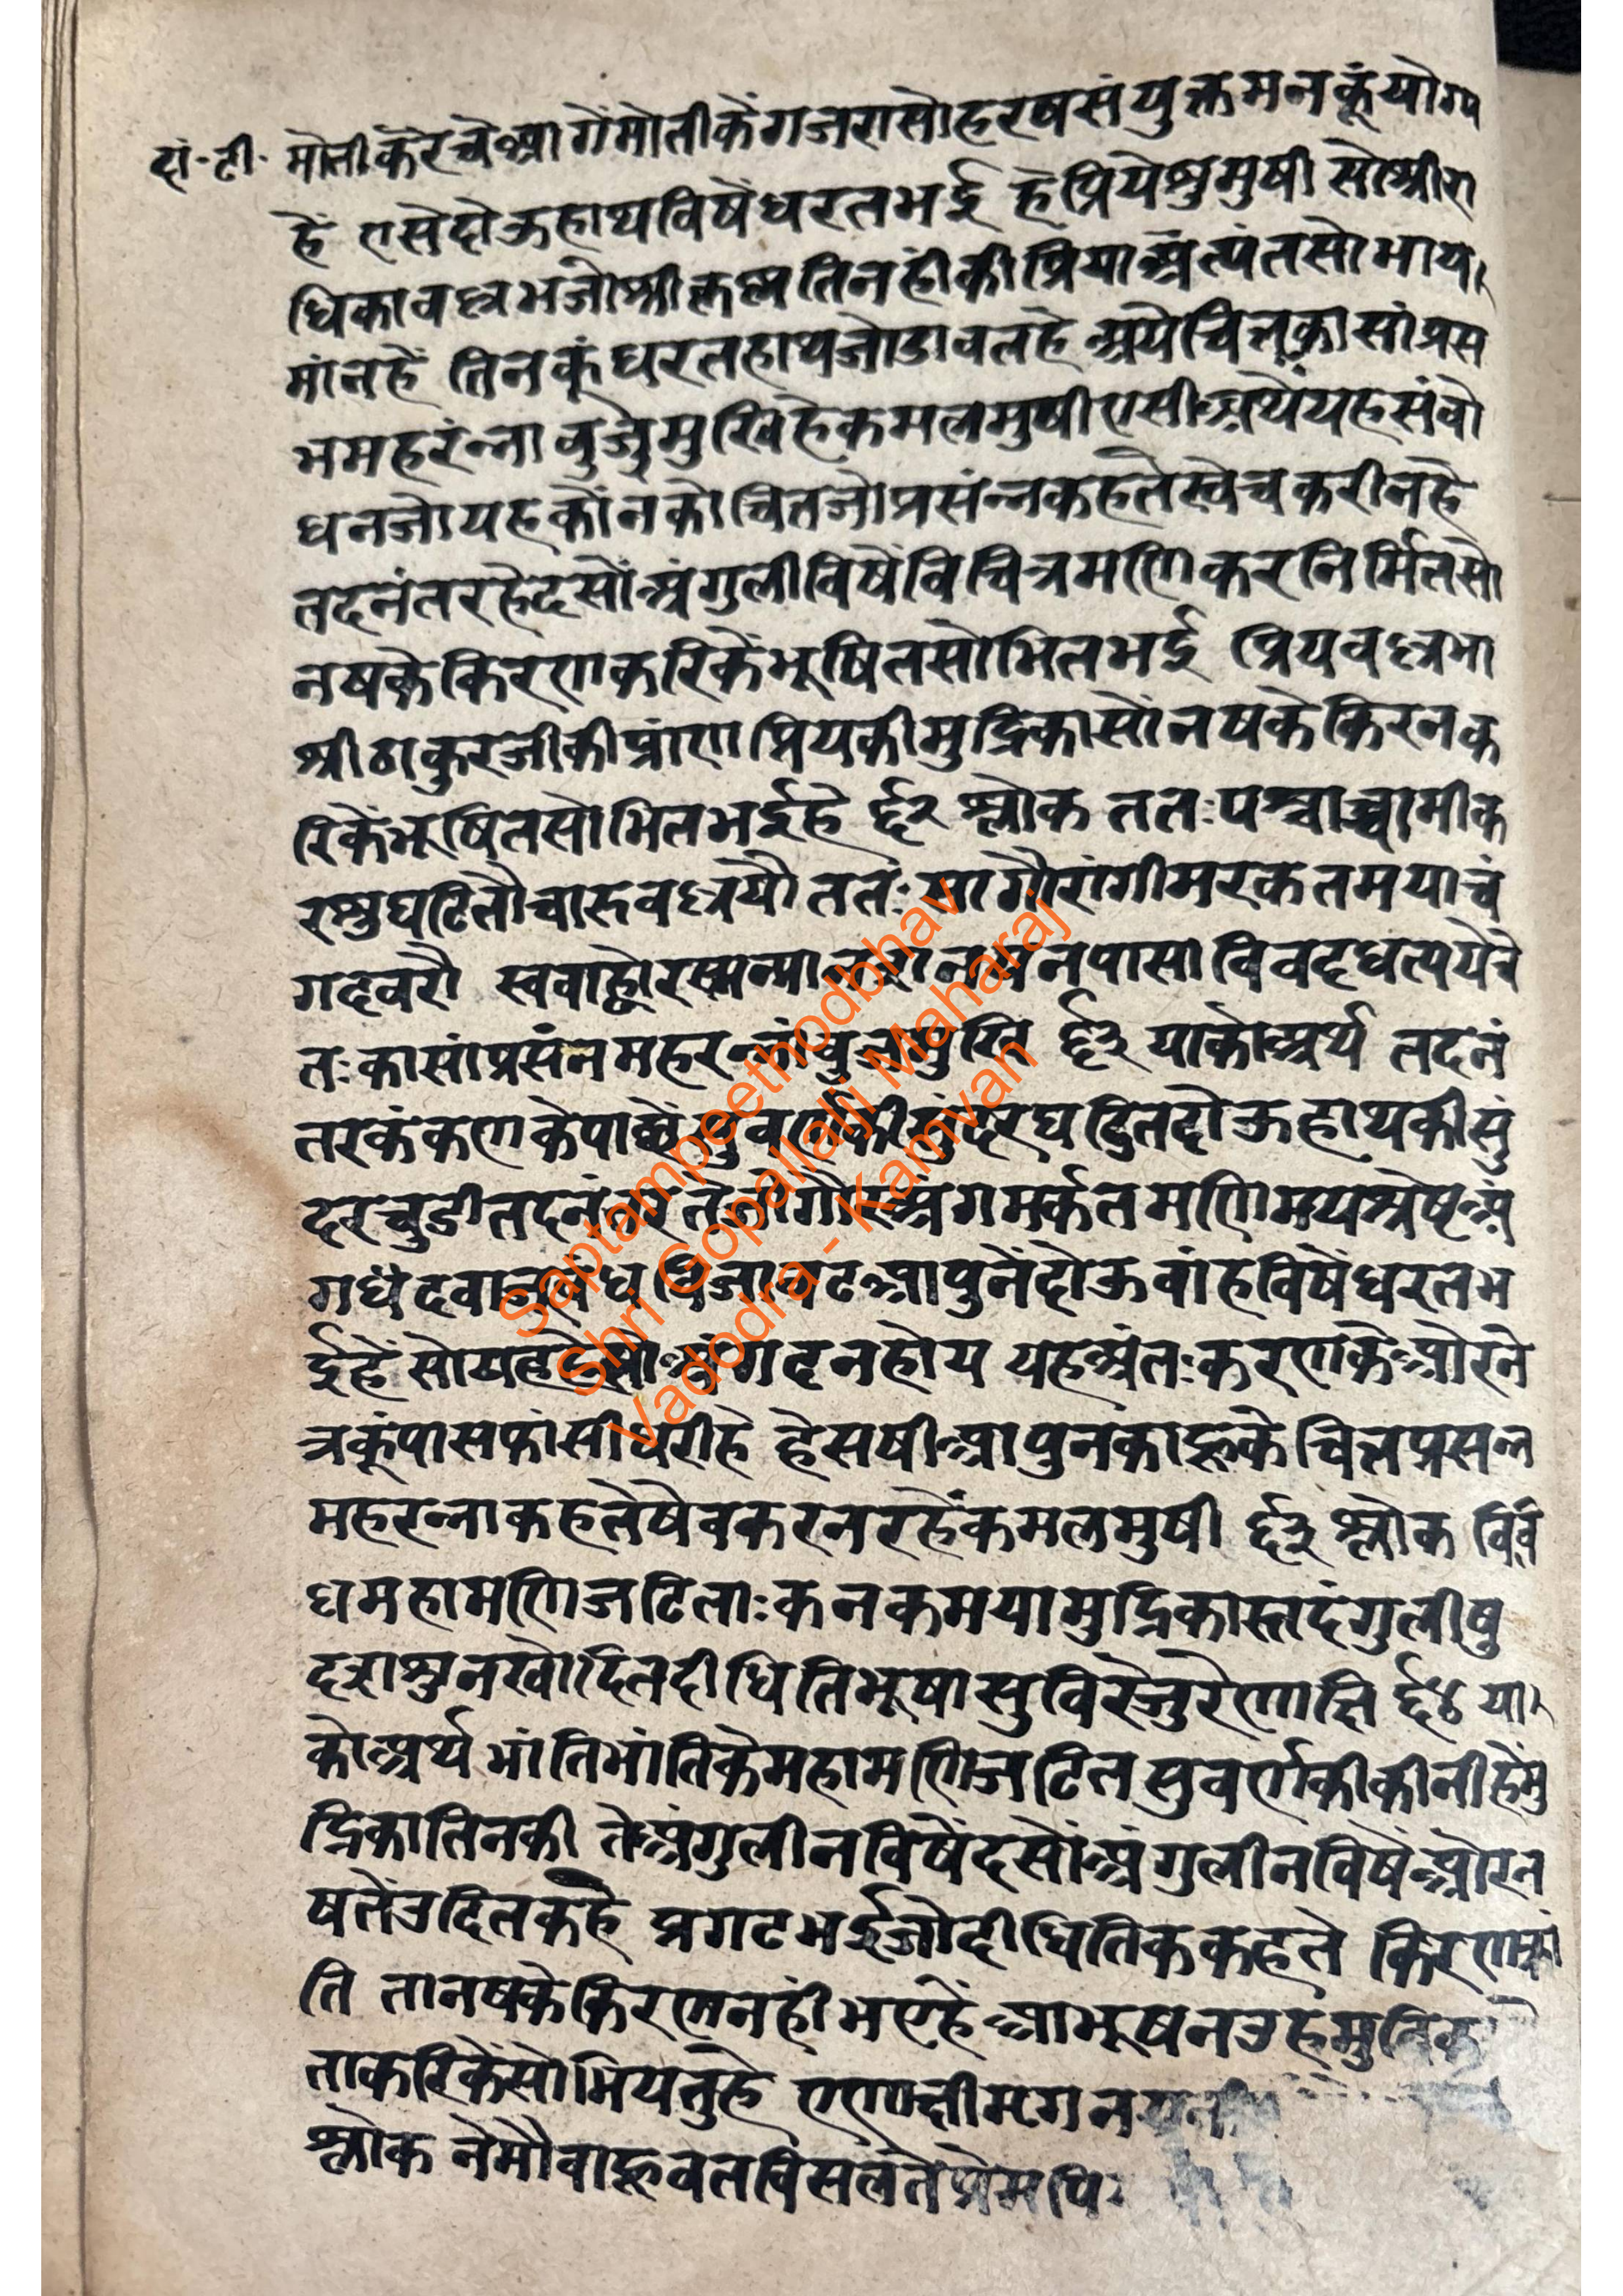 दां.टी. मोतीकेरचेआगेंमोतीकेंगजरासोहरषसंयुक्तमनकूंयोग्य
हें एसेदोऊहाथविषेंधरतभई हेप्रियेशुमुषी सोश्रीरा
धिकावल्लभजोश्रीकृष्ण तिनहींकीप्रियाअंत्यंतसोभाय
मांनहें तिनकूंधरतहाथजोडावलहे अयेचित्तकासांप्रस
भमहरंन्नावुजुमुखिहेकमलमुषीएसीअर्थेयहसंबो
धनजोयहकोंनकोचितजोप्रसंन्नकहतेस्वेचकरीनहे
तदनंतरहेदसोंअंगुलीविषेंविचित्रमणिकरनिर्मितसो
नषकेकिरणकरिकेंभूषितसोभितभई प्रियवल्लभा
श्रीठाकुरजीकीप्रांणप्रियकीमुद्रिकासोंनषकेकिरनक
रिकेंभूषितसोभितभईहे ६२ श्लोक ततःपश्चाच्चामीक
रशुघटितौचारुवलयौ ततःसागौरांगीमरकतमयाचं
गदवरौ स्वबाह्वोरस्मन्मा
तःकासांप्रसंनमहरन्नांबुजमुखि ६३ याकोअर्थ तदनं
तरकंकणकेपाछेंसुवर्णकीसुंदरघटितदोऊहाथकीसुं
दरचुडीतदनंतरतेसोगौरअंगमर्कतमणिमयश्रेष्टअं
गधंदवाजुबंध आपुनेंदोऊवांहविषेंधरतभ
ईहें सो नहोय यहअंतःकरणकेओरने
त्रकूंपासफांसीधरीहे हेसषीआपुनकाहूकेचित्तप्रसन्न
महरन्नाकहतेषेवकरनरहेंकमलमुषी ६३ श्लोक विवि
धमहामणिजटिताःकनकमयामुद्रिकास्तदंगुलीषु
दशशुनखोदितदीधितिभूषासुविरेजुरेणाक्षि ६४ या
कोअर्थ भांतिभांतिकेमहामणिजटित सुवर्णकीकीनीहेंमु
द्रिकातिनकी तेअंगुलीनविषेंदसोंअंगुलीनविषेंओरन
षतेंउदितकहै प्रगटभईजोदीधितिककहते किरण
ति तानषकेकिरणनहींभएहें आभूषनउहमुद्रिका
ताकरिकेंसोभियतुहे एणाक्षीमृगन
श्लोक नेमौवाहूवलविसलतेप्रेम